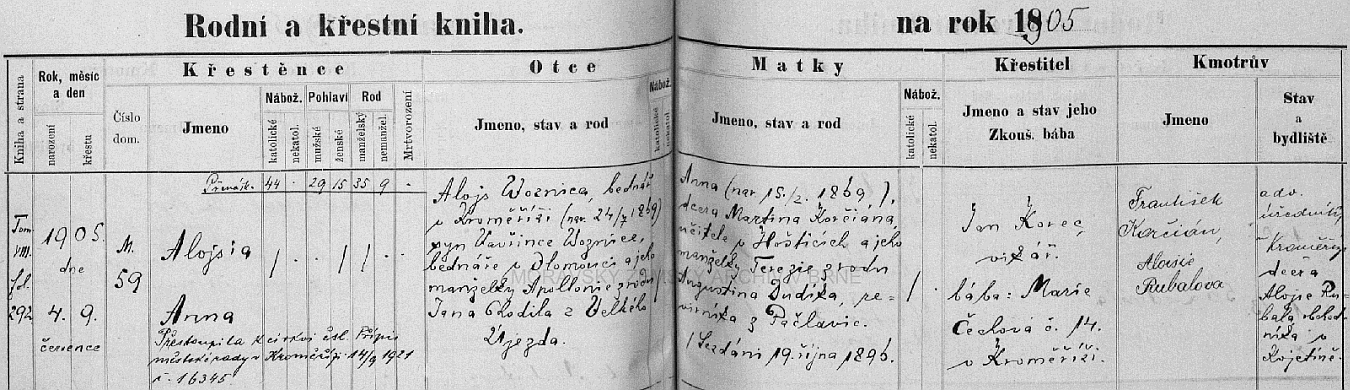 Rodní a křestní kniha.
na rok 1905
Kniha a strana
Rok, měsíc
a den
narození
křestu
Číslo
dom.
Křestěnce
Jmeno
Nábož.
katolické
nekatol.
Pohlaví
mužské
ženské
Rod
manželský
nemanžel.
Mrtvorození
Otce
Jmeno, stav a rod
Nábož.
katolické
nekatol.
Matky
Jmeno, stav a rod
Nábož.
katolické
nekatol.
Křestitel
Jmeno a stav jeho
Zkouš. bába
Kmotrův
Jmeno
Stav
a
bydliště
44 . 29 15 35 9 .
Tom
VIII.
fol.
292
1905.
dne
4. 9.
července
M.
59
Aloisia
Anna
Přestoupila k církvi čsl. Přípis
městské rady v Kroměříži 14/9 1921
č. 16345.
Alojs Woznica, bednář
v Kroměříži (nar. 24/7 1869)
syn Vavřince Woznice,
bednáře v Olomouci a jeho
manželky Apollonie zrodu
Jana Chodila z Velkého
Újezda.
Anna (nar. 15./2. 1869,),
dcera Martina Korčiana,
učitele v Hošticích a jeho
manželky Terezie zrodu
Augustina Dudíka, re-
virníka z Pačlavic.
/ Sezdáni 19. října 1896.
MORAVSKÝ ZEMSKÝ ARCHIV V BRNĚ
Jan Korec,
vikář.
bába: Marie
Čechová č. 14.
v Kroměříži.
František
Korčián,
Aloisie
Rubalova
adv.
úředník
Kroměříž
dcera
Alojse Ru-
bala, obchod-
níka v
Kojetíně.